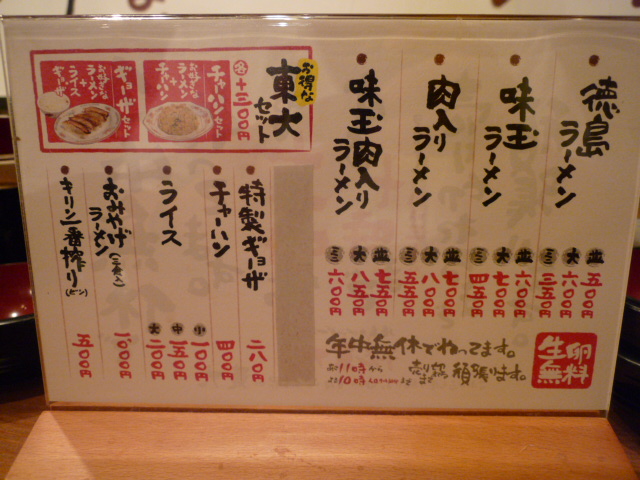 徳島ラーメン
並 五〇〇円
大 六〇〇円
ミニ 三五〇円
味玉ラーメン
並 六〇〇円
大 七〇〇円
ミニ 四五〇円
肉入りラーメン
並 七〇〇円
大 八〇〇円
ミニ 五五〇円
味玉肉入りラーメン
並 七五〇円
大 八五〇円
ミニ 六〇〇円
お得な
東大セット
各+三〇〇円
チャーハンセット
お好きなラーメン+チャーハン
ギョーザセット
お好きなラーメン+ライス+ギョーザ
特製ギョーザ
二八〇円
チャーハン
四〇〇円
ライス
小 一〇〇円
中 一五〇円
大 二〇〇円
おみやげラーメン(二食入)
一、〇〇〇円
キリン一番搾り(ビン)
五〇〇円
年中無休でねってます。
朝11時から
まで 頑張ります。
生卵無料